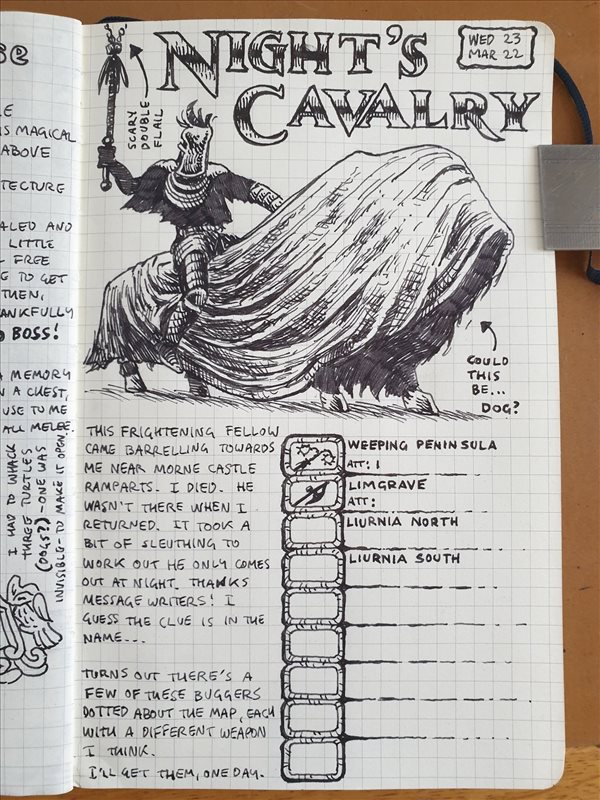 SE
LE
IS MAGICAL
ABOVE
TECTURE
ALED AND
LITTLE
FREE
G TO GET
THEN,
ANKFULLY
BOSS!
A MEMORY
N A CHEST,
USE TO ME
ALL MELEE.
I HAD TO WHACK
THREE TURTLES
(DOGS?) - ONE WAS
INVISIBLE - TO MAKE IT OPEN
NIGHT'S
CAVALRY
WED 23
MAR 22
SCARY
DOUBLE
FLAIL
COULD
THIS
BE...
DOG?
THIS FRIGHTENING FELLOW
CAME BARRELLING TOWARDS
ME NEAR MORNE CASTLE
RAMPARTS. I DIED. HE
WASN'T THERE WHEN I
RETURNED. IT TOOK A
BIT OF SLEUTHING TO
WORK OUT HE ONLY COMES
OUT AT NIGHT. THANKS
MESSAGE WRITERS! I
GUESS THE CLUE IS IN THE
NAME...
TURNS OUT THERE'S A
FEW OF THESE BUGGERS
DOTTED ABOUT THE MAP, EACH
WITH A DIFFERENT WEAPON
I THINK.
I'LL GET THEM, ONE DAY.
WEEPING PENINSULA
ATT: 1
LIMGRAVE
ATT:
LIURNIA NORTH
LIURNIA SOUTH